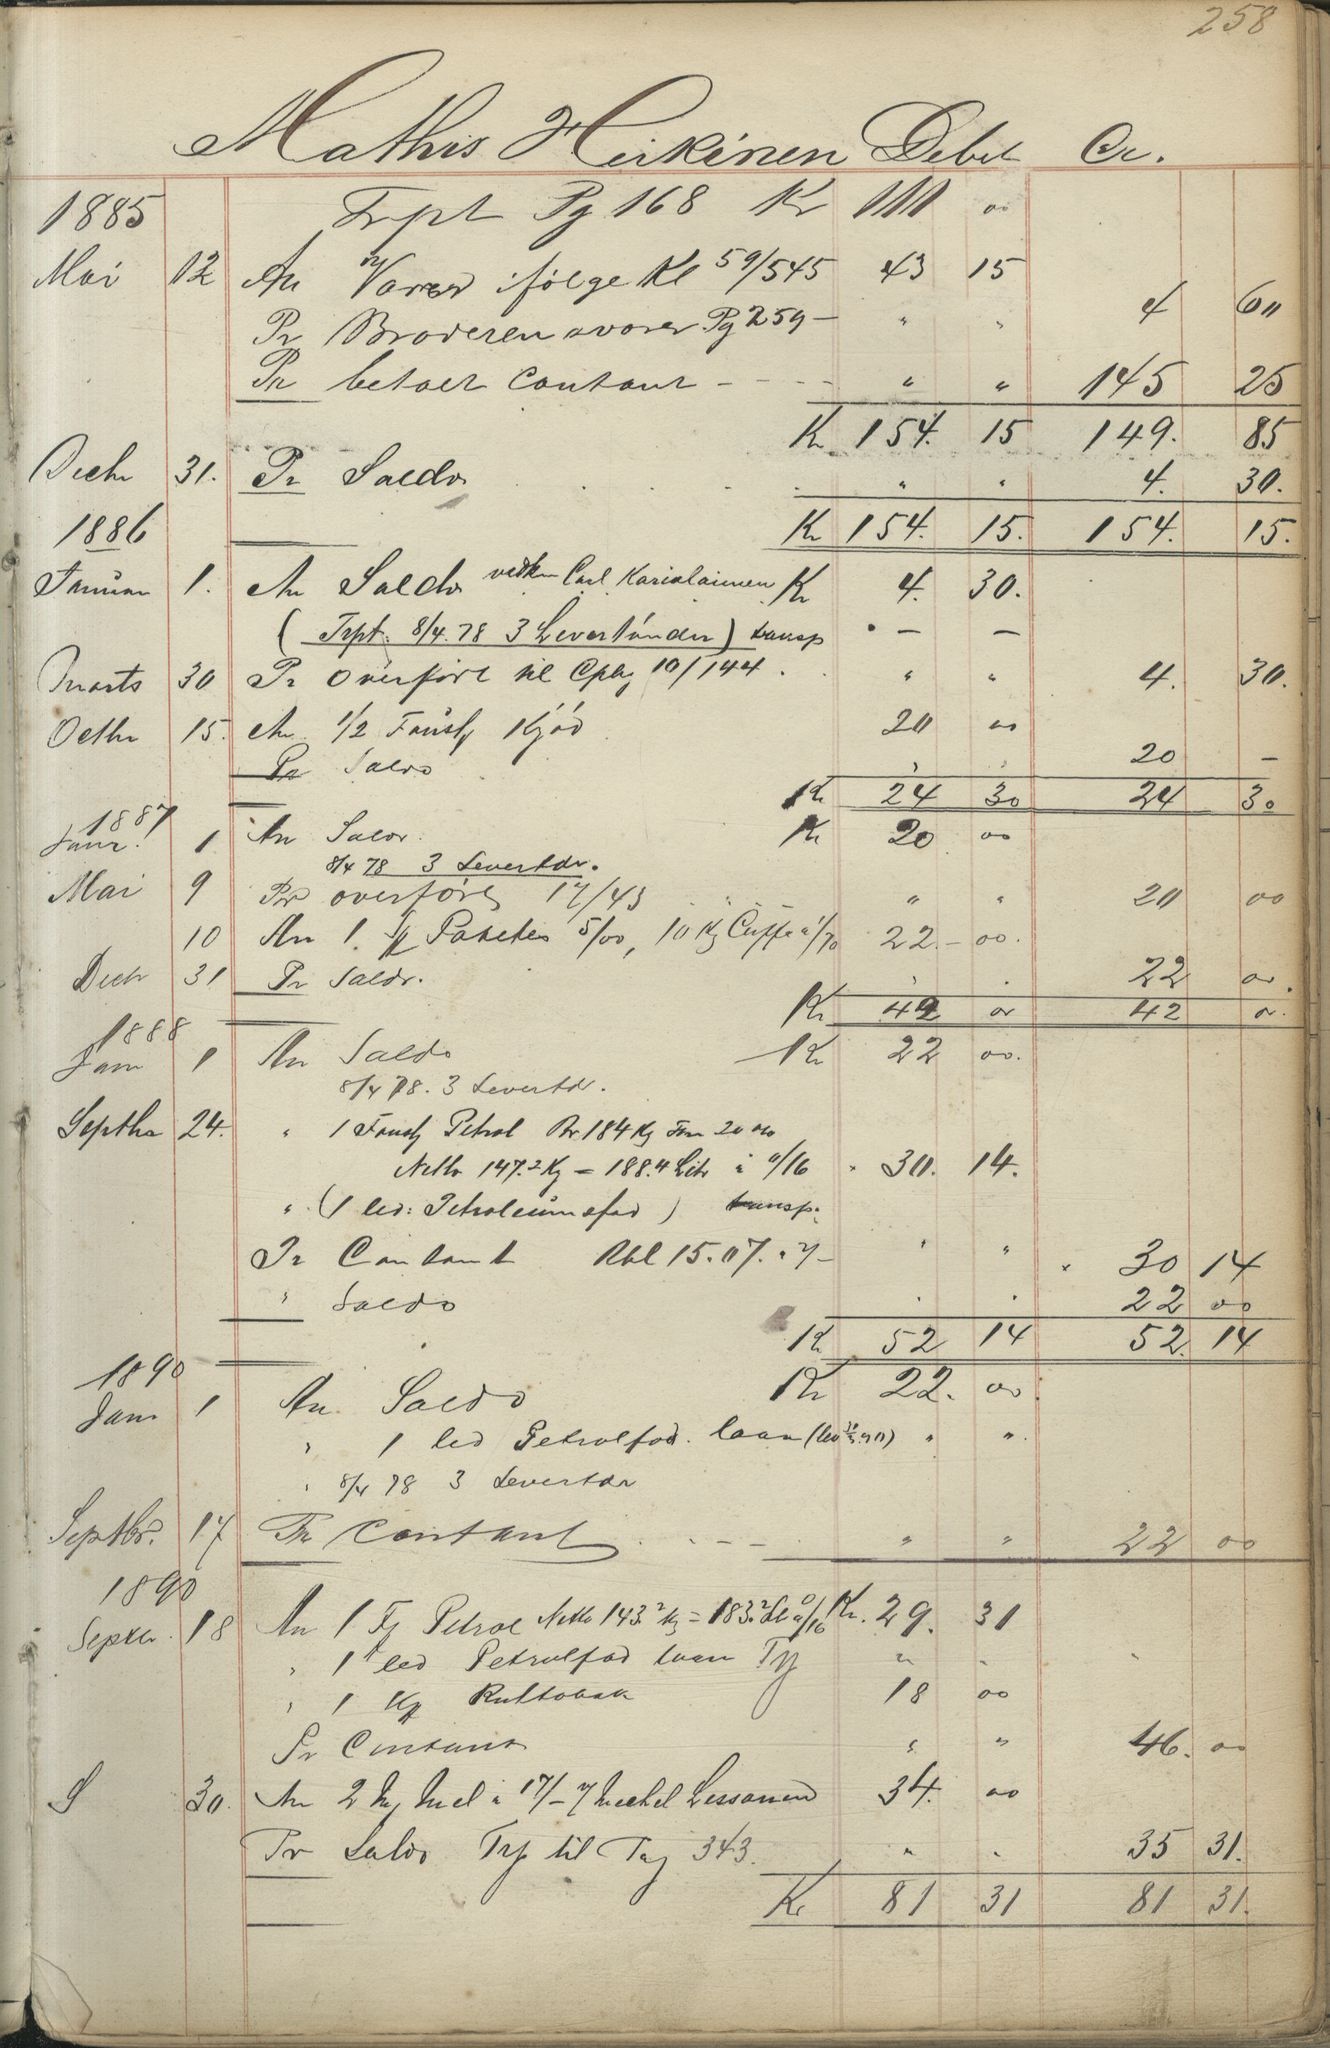 258
Mathis Heikinen Debet Cr.
1885 Trpt Pg 168 Kr 111 00
Mai 12 An Varer ifølge Kl 59/545 43 15
Pr Broderen Pg 259 — " " 4 60
Pr betalt Contant - - - - " " 145 25
Kr 154. 15 149. 85
Decbr 31. Pr Saldo . . . . " " 4. 30.
1886 Kr 154. 15. 154. 15.
Januar 1. An Saldo vedkm Carl Karialainen Kr 4. 30.
( Trpt. 8/4. 78 3 Levertönder ) transp — —
Marts 30 Pr overfört til Cpbg 10/144 . " " 4. 30.
Octbr 15. An 1/2 Fustg Kjöd 20 00
Pr Saldo " " 20 —
Kr 24 30 24 30
1887
Janr. 1 An Saldo. Kr 20 00
8/4 78 3 Levertdr.
Mai 9 Pr overfört 17/43 " " 20 00
10 An 1 5/00, 10 Kg Caffe à 1/70 22 — 00.
Decbr 31 Pr Saldo. " " 22 00.
Kr 42 00 42 00.
1888
Jan 1 An Saldo Kr 22 00.
8/4 78. 3 Levertdr.
Septbr 24. " 1 Fustg Petrol Br 184 Kg 20 %
Netto 147.2 Kg = 188.4 Litr à 0/16 " 30. 14.
" (1 led: Petroleumsfad ) transp.
Pr Contant Rbl 15.07. " " 30 14
" Saldo " " 22 00
Kr 52 14 52. 14
1890
Jan 1 An Saldo Kr 22. 00
" 1 led Petrolfad. laan " "
" 8/4 78 3 Levertdr
Septbr. 17 Pr Contant . - - - " " 22 00
1890
Septbr. 18 An 1 Fg Petrol Netto 143.2 Kg = 183.2 à 0/16 Kr. 29. 31
" 1 led Petrolfad laan " "
" 1 Kg 18 00
Pr Contant " " 46. 00
S 30. An 2 Mel à 17/- Lessanen 34. 00
Pr Saldo Trp til Pag 343. " " 35 31.
Kr 81 31 81 31.